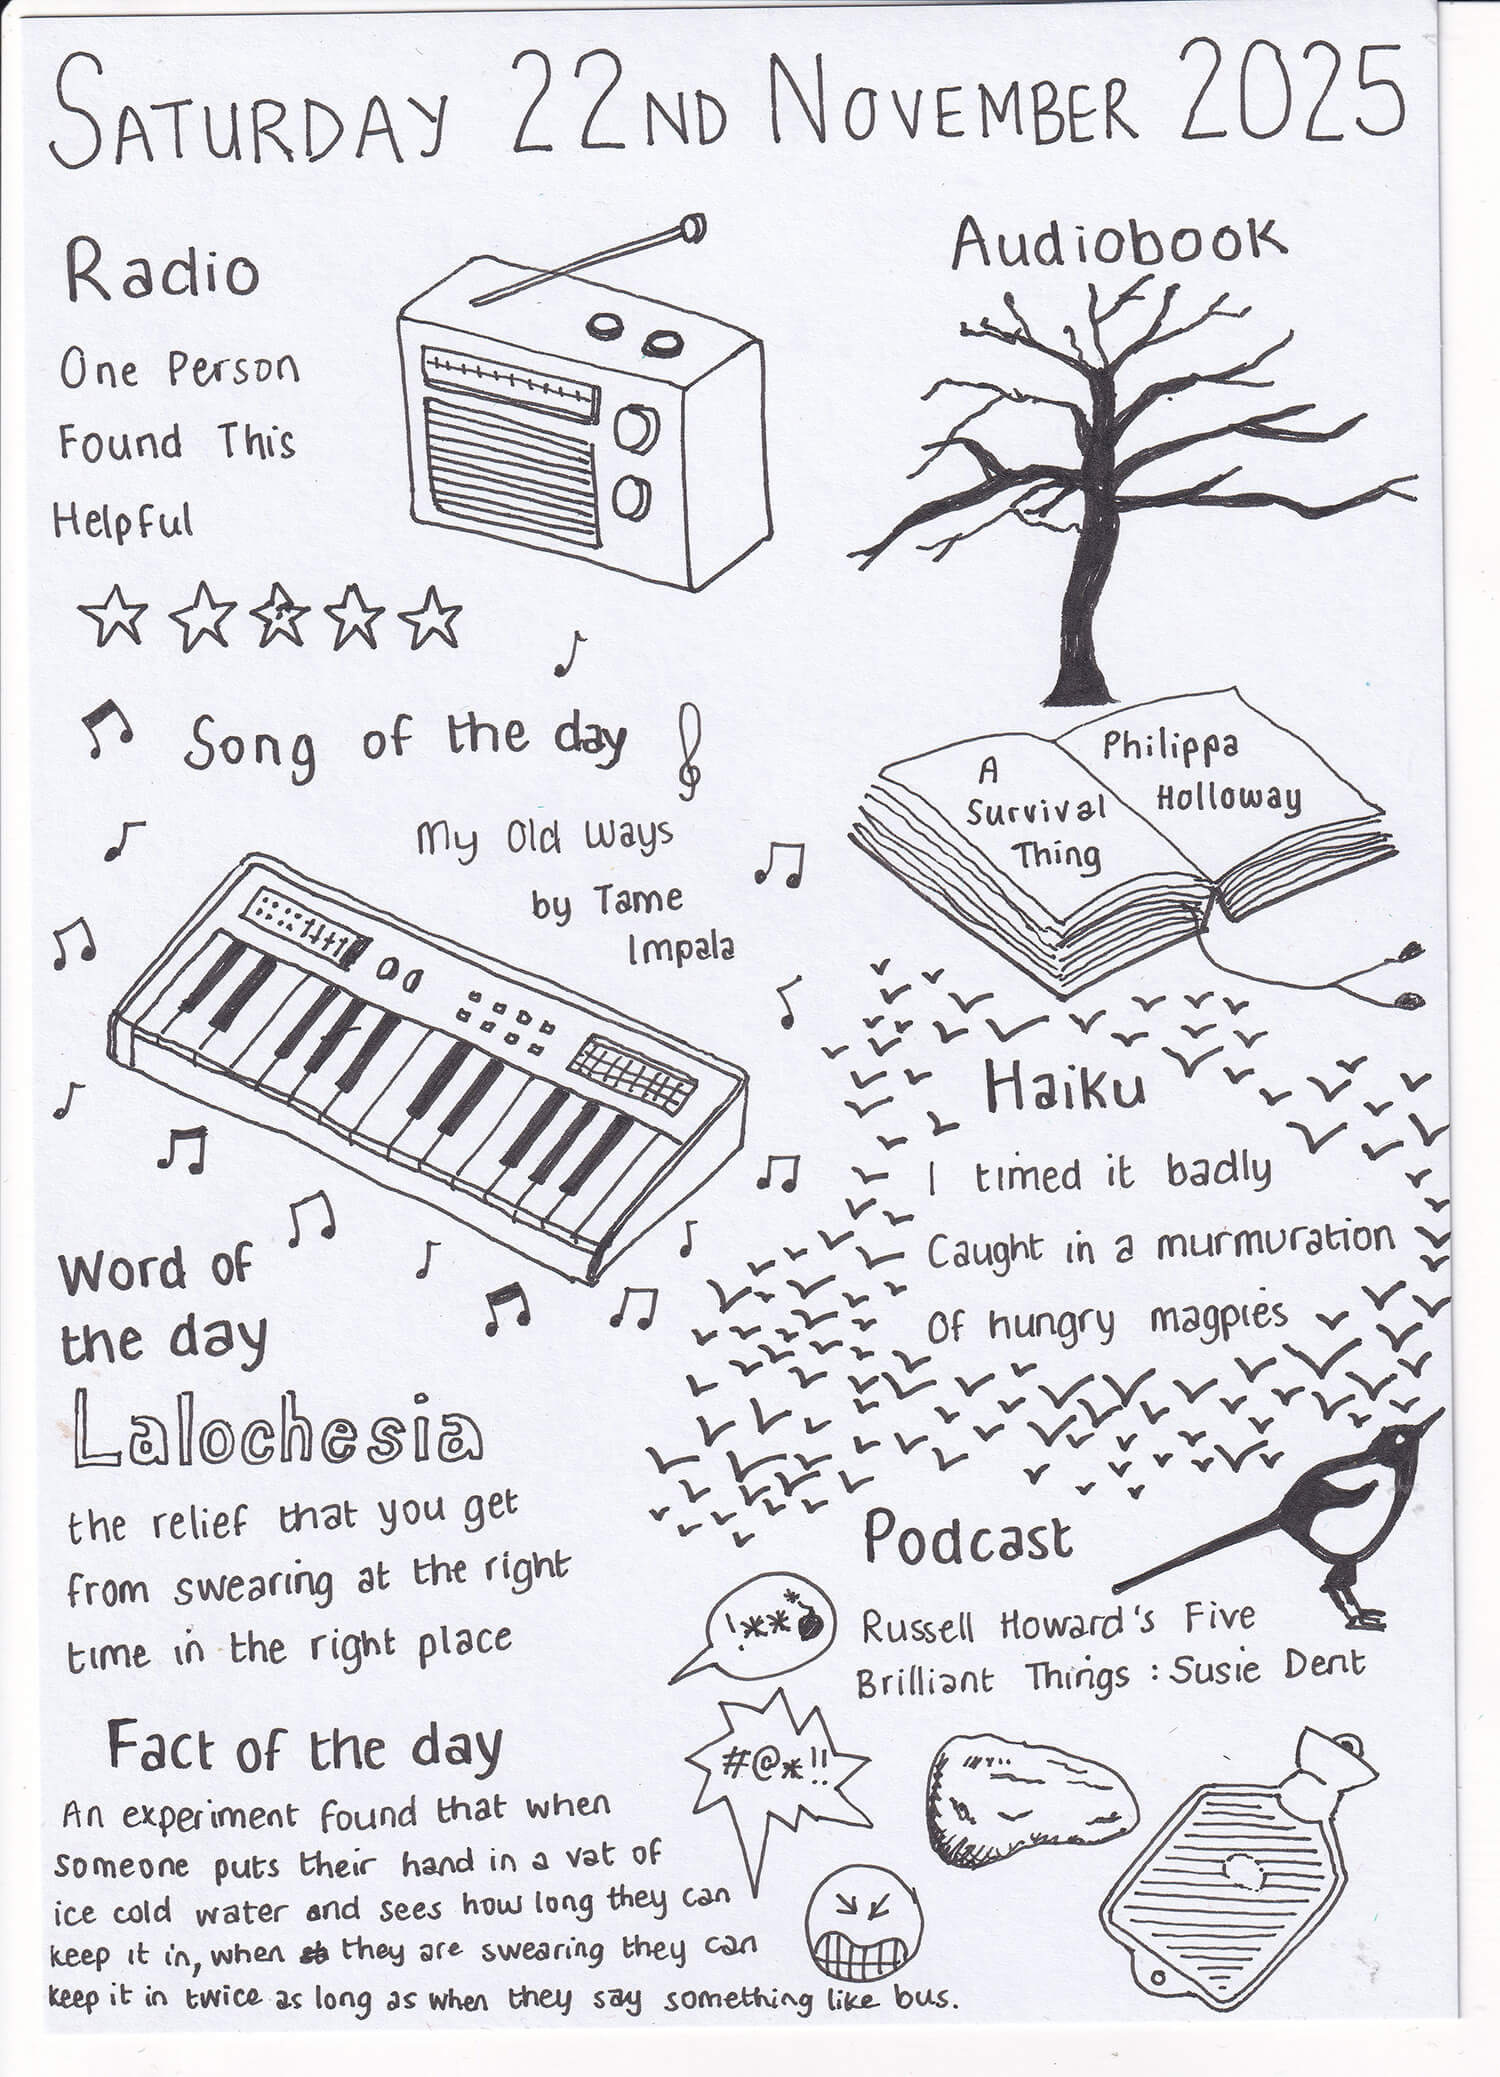 SATURDAY 22ND NOVEMBER 2025
Radio
One Person
Found This
Helpful
Audiobook
A
Survival
Thing
Philippa
Holloway
Song of the day
My Old Ways
by Tame
Impala
Haiku
I timed it badly
Caught in a murmuration
Of hungry magpies
Word of
the day
Lalochesia
the relief that you get
from swearing at the right
time in the right place
Podcast
Russell Howard's Five
Brilliant Things : Susie Dent
!***
#@*!!
Fact of the day
An experiment found that when
someone puts their hand in a vat of
ice cold water and sees how long they can
keep it in, when they are swearing they can
keep it in twice as long as when they say something like bus.